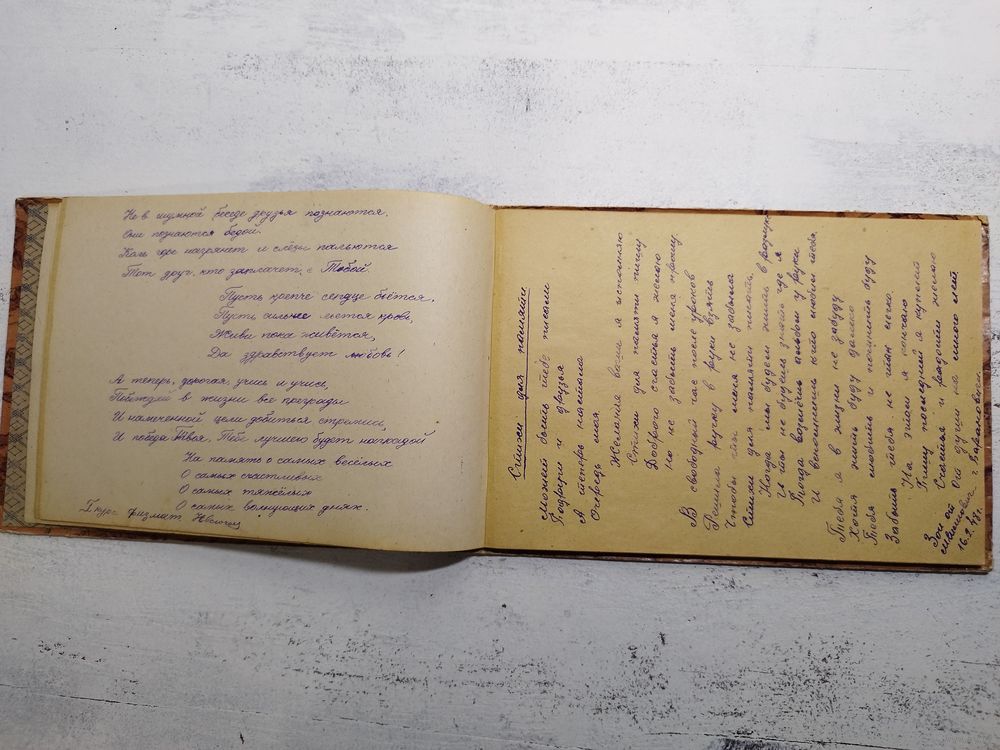 Не в шумной беседе друзья познаются,
Они познаются бедой.
Коль горе нагрянет и слёзы польются
Тот друг, кто заплачет с Тобой.
Пусть крепче сердце бьётся,
Пусть сильнее льется кровь,
Живи пока живётся,
Да здравствует любовь!
А теперь, дорогая, учись и учись,
Побеждай в жизни все преграды
И намеченной цели добиться стремись,
И победа Твоя, Тебе лучшею будет наградой
На память о самых весёлых
О самых счастливых
О самых тяжёлых
О самых волнующих днях.
I курс физмат
Стихи для памяти
Может быть тебе писали
Подруги и друзья
А теперь настала
Очередь моя
Желания ваши я исполняю
Стихи для памяти пишу
Доброго счастья желаю
но не забыть меня прошу.
В свободный час после уроков
Решила ручку в руки взять
Чтобы ты меня не забыла
Стихи для памяти писать.
Когда мы будем жить в разлуке
и ты не будешь знать где я
Тогда возьмёшь альбом у руки
и вспомнишь кто любил тебя.
Тебя я в жизни не забуду
Хотя жить буду далеко
Тебя любить и помнить буду
Забыть тебя не так легко.
На этом я кончаю
Пишу последний я куплет
Счастья и радости желаю
От души на много лет
Зои от
16.2.48 г. г. Барановичи.